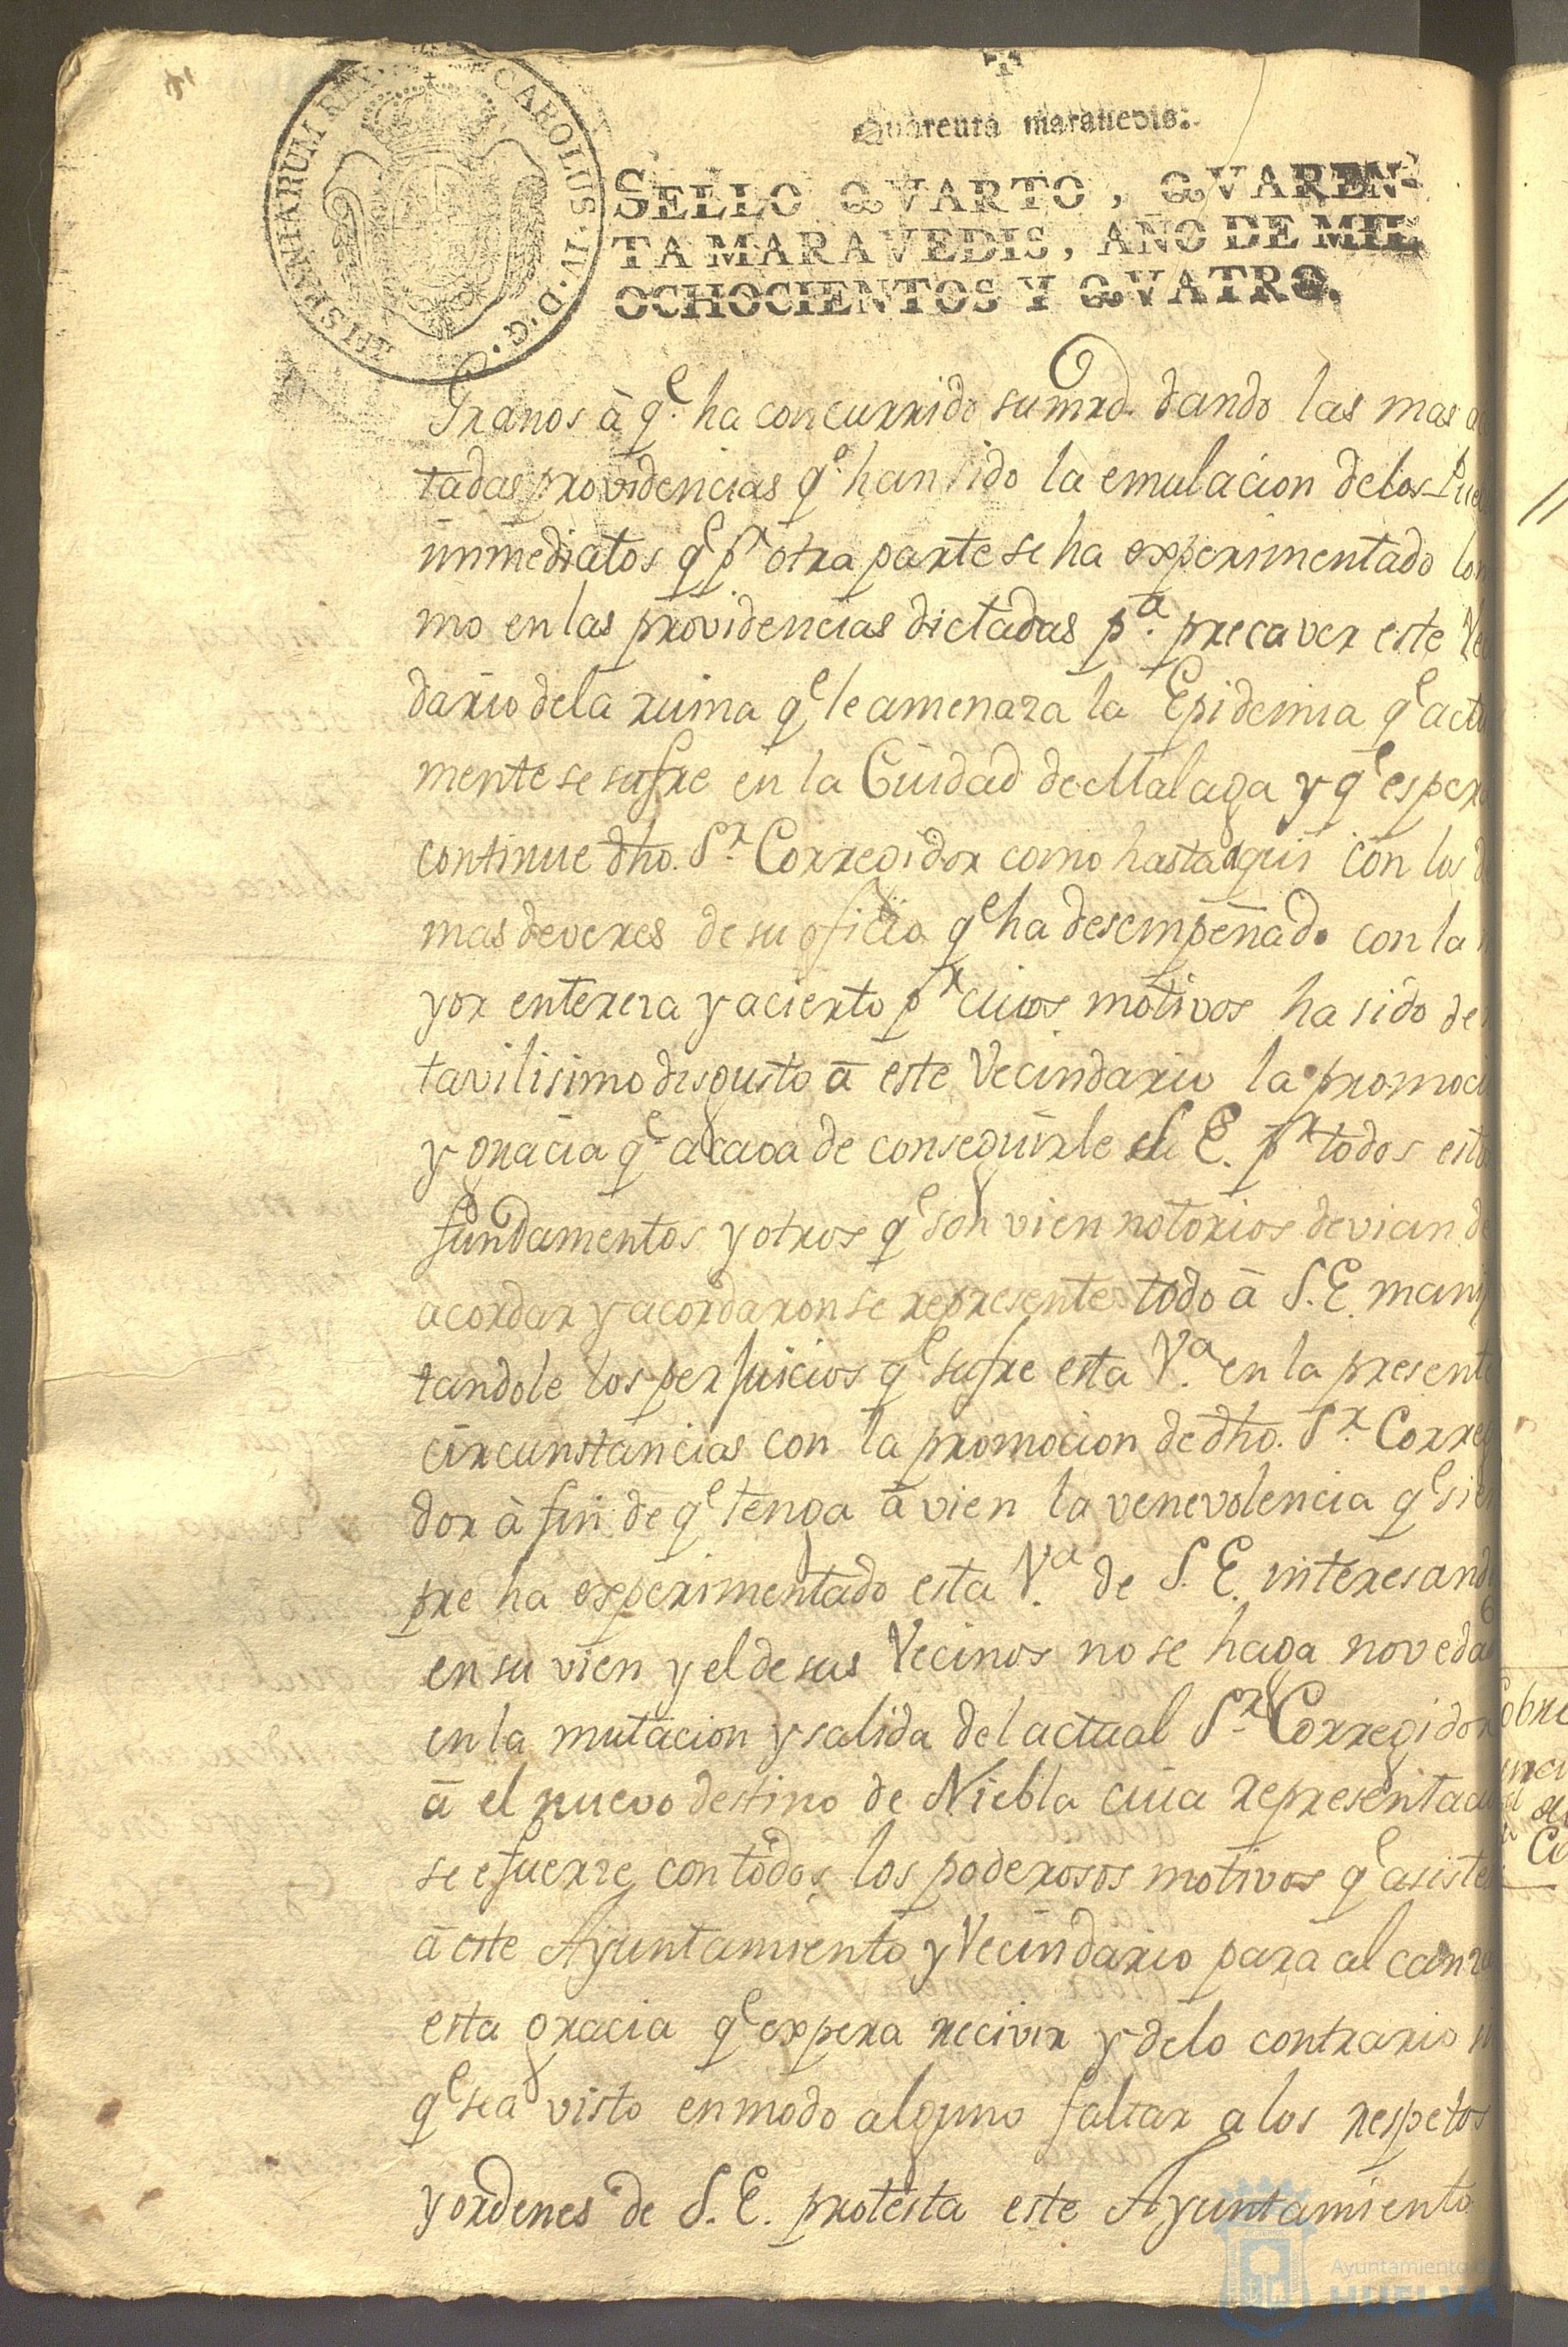 HISPANIARUM REX CAROLUS·IV·D·G·
Quarenta maravedis.
SELLO QVARTO, QVAREN-
TA MARAVEDIS, AÑO DE MIL
OCHOCIENTOS Y QVATRO.
Granos à qe. ha concurrido su mrd. dando las mas a
tadas providencias qe. han sido la emulacion delos Pue
inmediatos qe pr. otra parte se ha experimentado lo
mo en las providencias dictadas pa. precaver este Ve
dario dela ruina qe le amenaza la Epidemia qe actu
mente se sufre en la Ciudad de Malaga y qe esper
continue dho. Sr. Corregidor como hasta aqui con los d
mas deveres de su oficio qe ha desempeñado con la
yor entereza y acierto pr cuios motivos ha sido de
tavilisimo disgusto à este Vecindario la promoci
y gracia qe acava de conseguirle S. E. pr todos esto
fundamentos y otros qe son vien notorios devian de
acordar y acordaron se represente todo à S. E. mani
tandole los perjuicios qe sufre esta Va. en la present
circunstancias con la promocion de dho. Sr. Corre
dor à fin de qe tenga à vien la venevolencia qe sie
pre ha experimentado esta Va. de S. E. interesand
en su vien y el de sus Vecinos no se haga noveda
en la mutacion y salida del actual Sr. Corregidor
à el nuevo destino de Niebla cuia representaci
se efuerze con todos los poderosos motivos qe asiste
à este Ayuntamiento y Vecindario para alcanza
esta gracia qe expera recivir y delo contrario
qe sea visto en modo alguno faltar a los respetos
y ordenes de S. E. protesta este Ayuntamiento
Ayuntamiento de
HUELVA